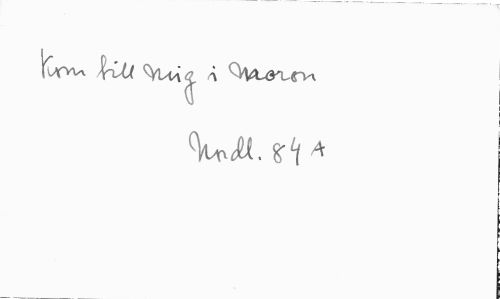 Kom till mig i Maoron
Nordl. 84 A